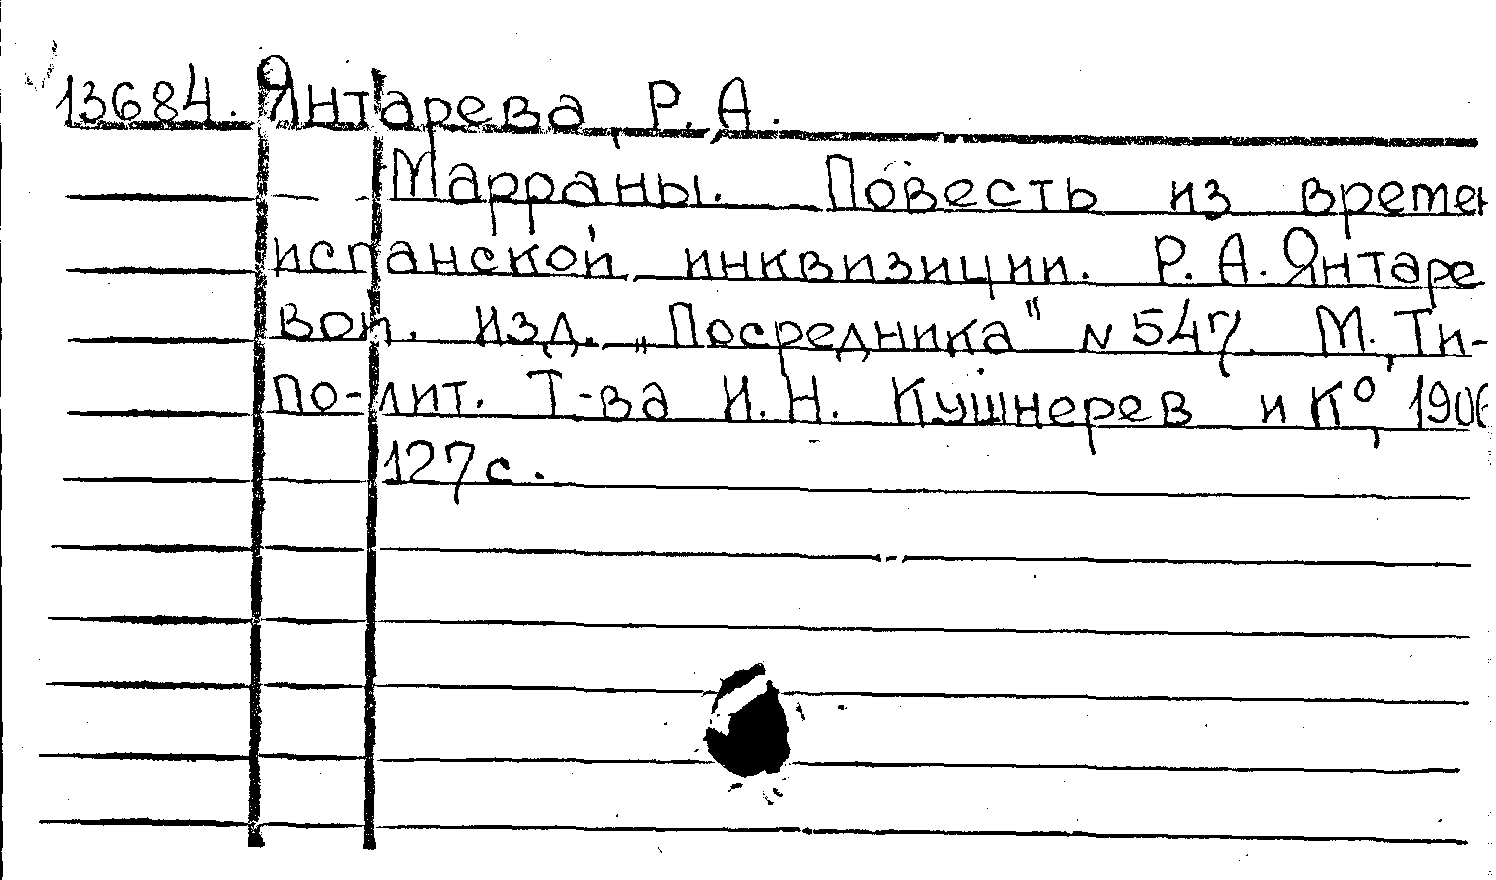 13684. Янтарева, Р. А.
Марраны. Повесть из времен
испанской инквизиции. Р. А. Янтаре
вой. Изд. „Посредника" N 547. М., Ти-
по-лит. Т-ва И. Н. Кушнерев и К⁰, 1906
127 с.